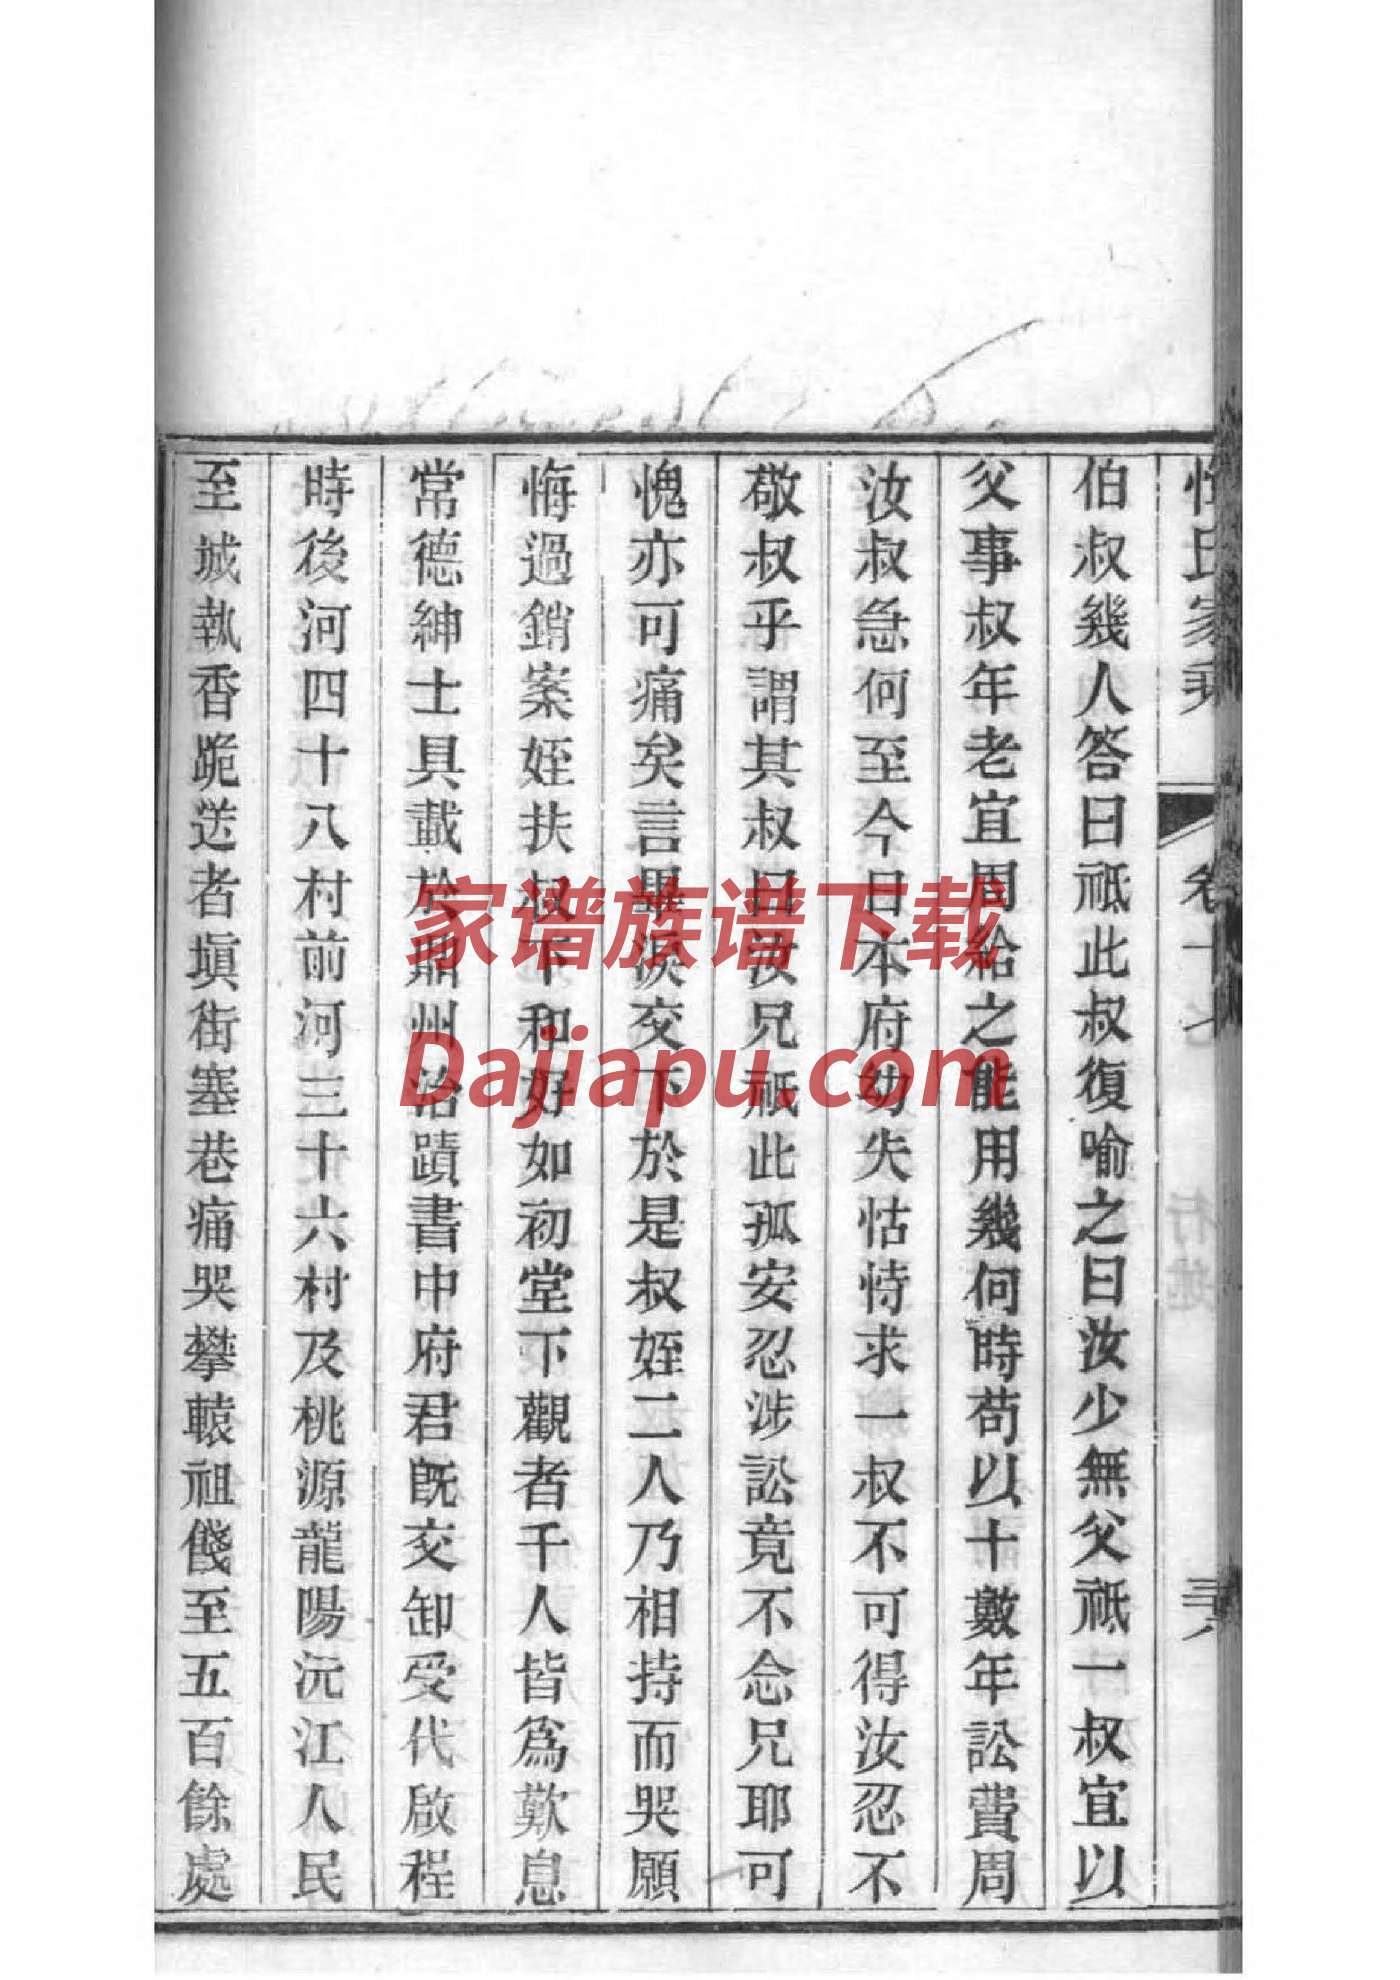 惲氏家乘 卷十七 行述 三六
伯叔幾人答曰祗此叔復喻之曰汝少無父祗一叔宜以
父事叔年老宜周給之能用幾何時苟以十數年訟費周
汝叔急何至今日本府幼失怙恃求一叔不可得汝忍不
敬叔乎謂其叔曰汝兄祗此孤安忍涉訟竟不念兄耶可
愧亦可痛矣言畢淚交下於是叔姪二人乃相持而哭願
悔過銷案姪扶叔下和好如初堂下觀者千人皆為歎息
常德紳士具載於鼎州治蹟書中府君旣交卸受代啟程
時後河四十八村前河三十六村及桃源龍陽沅江人民
至城執香跪送者塡街塞巷痛哭攀轅祖餞至五百餘處
家谱族谱下载
Dajiapu.com